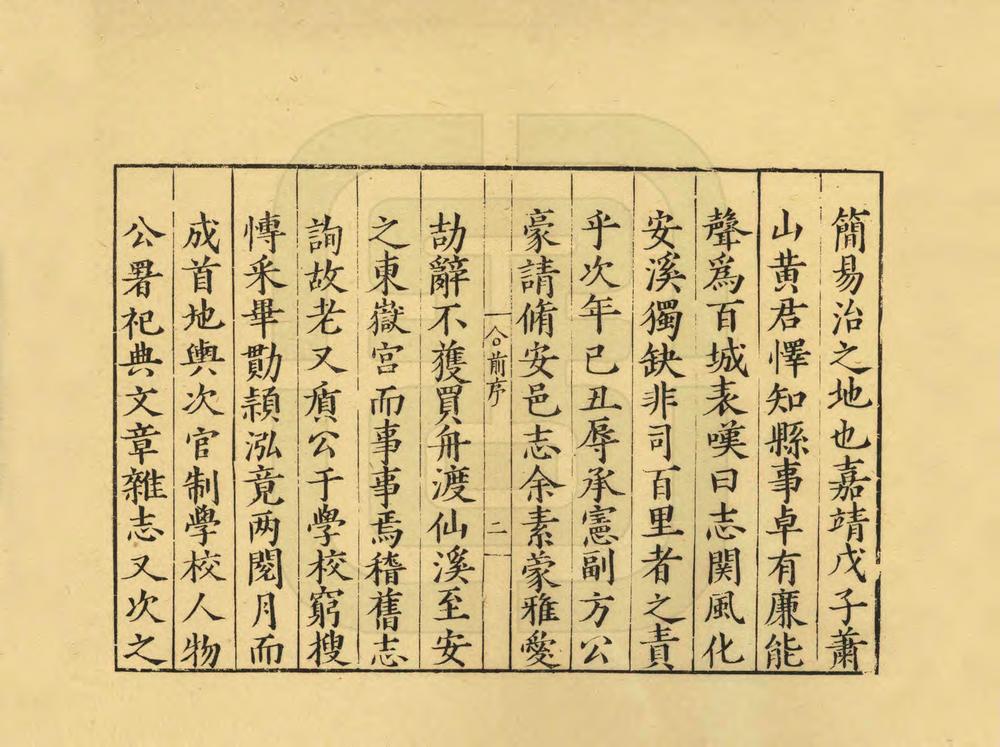 簡易治之地也嘉靖戊子蕭
山黄君懌知縣事卓有廉能
聲爲百城表嘆曰志関風化
安溪獨缺非司百里者之責
乎次年已丑辱承憲副方公
豪請脩安邑志余素蒙雅愛
前序
二
劼辭不獲買舟渡仙溪至安
之東嶽宮而事事焉稽舊志
詢故老又質公于學校窮搜
慱采畢勩頴泓竟两閱月而
成首地輿次官制學校人物
公署祀典文章雜志又次之